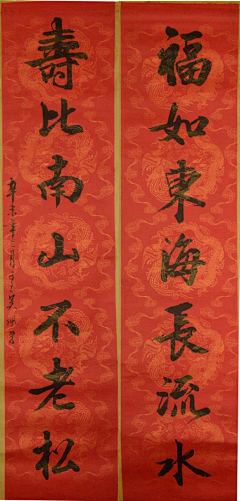 福如東海長流水
壽比南山不老松
辛未年